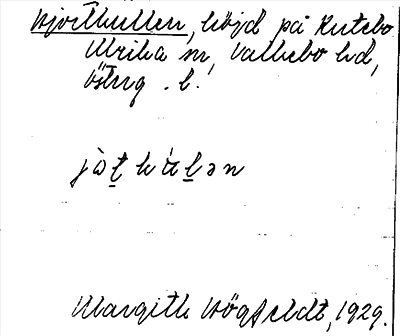 Hjortkullen, höjd på Rutebo
Ulrika sn, Valkebo hd,
Österg. l.
jòt kùlən
Margith Högfeldt, 1929.